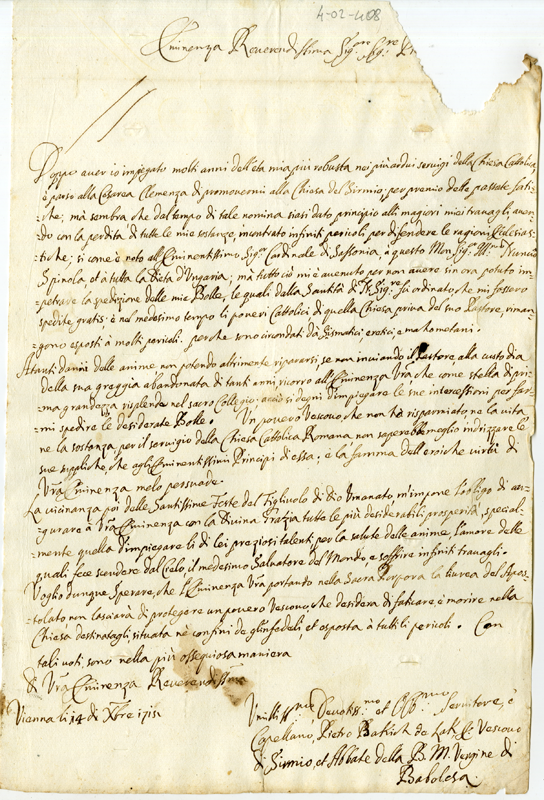 4-02-408
Eminenza Reverendissima Sig.re
Doppo auer io impegato molti anni dell'età mia più robusta nei più ardui seruigi della Chiesa Cattolica,
è parso alla Cesarea Clemenza di promouermi alla Chiesa del Sirmio, per premio delle passate fati-
-che; mà sembra che dal tempo di tale nomina siasi dato principio alli magiori miei trauagli, auen-
do con la perdita di tutte le mie sostanze, incontrato infiniti pericoli per difendere le ragioni Eclesias-
tiche; si come è noto all'Eminentissimo Sig.r Cardinale di Sassonia, à questo Mon.Sig.r Nuncio
Spinola et à tutta la Dieta d'Ungaria; mà tutto ciò mi è auenuto per non auere sin ora potuto im-
petrare la spedizione delle mie Bolle, le quali dalla Santità di fù ordinato, che mi fossero
spedite gratis: è nel medesimo tempo li poueri Cattolici di quella Chiesa priua del suo Pastore, riman-
-gono esposti à molti pericoli. perche sono circondati da Sismatici, eretici, e mahometani.
A tanti danni delle anime non potendo altrimente ripararsi, se non inuiando il Pastore alla custodia
della sua greggia abandonata di tanti anni, ricorro all'Eminenza Vra, che come stella di pri-
-ma grandezza risplende nel sacro Collegio, acciò si degni d'impiegare le sue intercessioni per far-
mi spedire le desiderate Bolle. Un pouero Vescouo, che non hà risparmiato ne la vita,
ne la sostanza per il seruigio della Chiesa Cattolica Romana, non saperebbe meglio indrizzare le
sue suppliche, che agli Eminentissimi Principi di essa; è la famma dell'eroiche virtù di
Vra Eminenza melo persuade.
La vicinanza poi delle Santissime Feste del Figliuolo di Dio Umanato, m'impone l'obligo di au-
-gurare à Vra Eminenza con la Diuina Grazia tutte le più desiderabili prosperità, special-
-mente quella d'impiegare li di lei preziosi talenti per la salute delle anime, l'amore delle
quali fece scendere dal Cielo il medesimo Saluatore del Mondo, e soffrire infiniti trauagli.
Voglio dunque sperare, che l'Eminenza Vra portando nella Sacra Porpora la liurea del Apos-
-tolato non lasciarà di protegere un pouero Vescouo, che desidera di faticare, è morire nella
Chiesa destinatagli, situata nè confini de gl'infedeli, et esposta à tutti li pericoli. Con
tali uoti, sono nella più ossequiosa maniera
di Vra Eminenza Reverendiss.ma
Vienna li 14 di Xbre 1715
Umiliss.mo Deuotiss.mo et Obb.mo Seruitore, è
Capellano, Pietro de Vescouo
di Sirmio, et Abbate della B. M. Vergine di
Babolcsa.